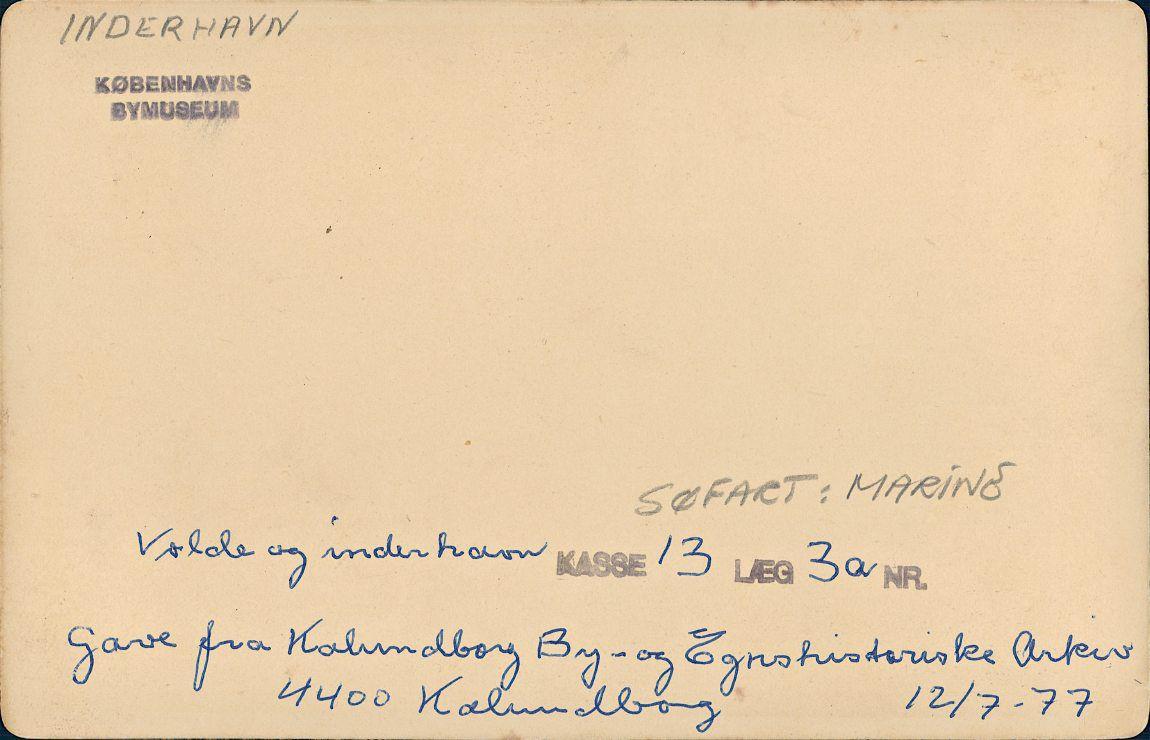 INDERHAVN
KØBENHAVNS
BYMUSEUM
SØFART: MARINE
Volde og inderhavn KASSE 13 LÆG 3a NR.
Gave fra Kalundborg By- og Egnshistoriske Arkiv
4400 Kalundborg 12/7-77